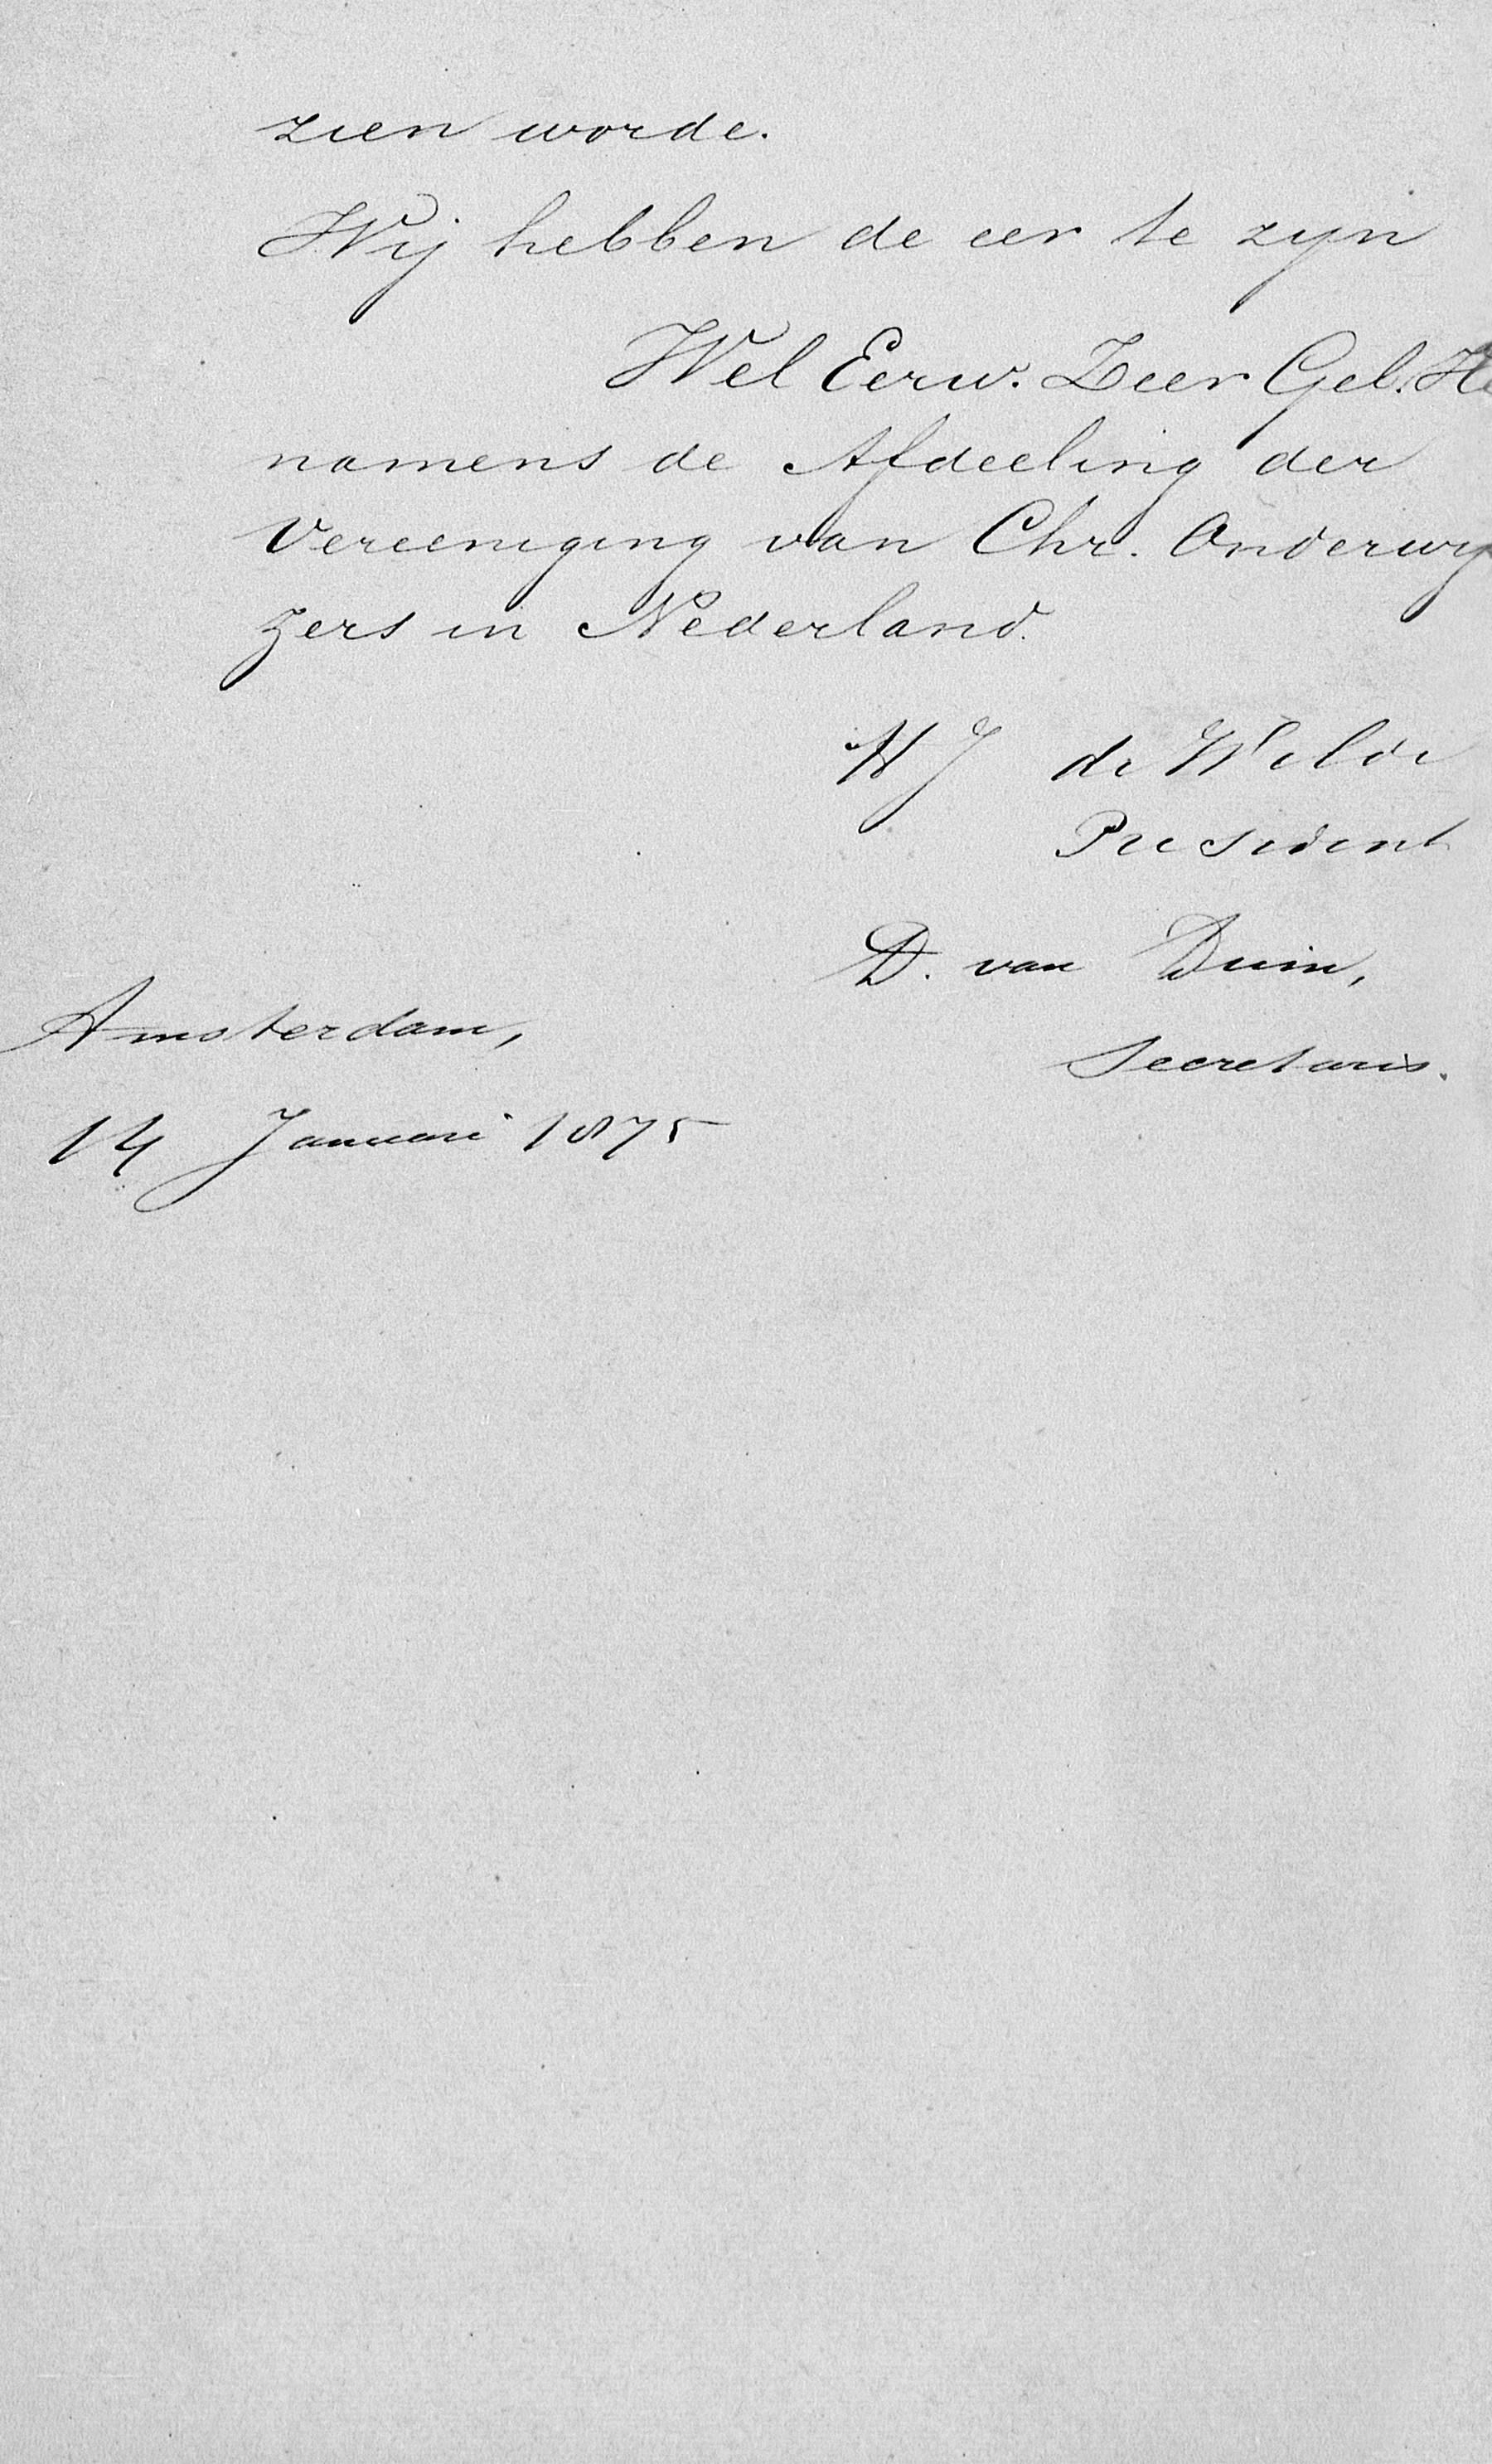 zien worde.
Wij hebben de eer te zyn
Wel Eerw. Zeer Gel.
namens de Afdeeling der
Vereeniging van Chr. Onderwy
zers in Nederland.
de Wilde
President
D. van Duin,
Secretaris.
Amsterdam,
14 Januari 1875